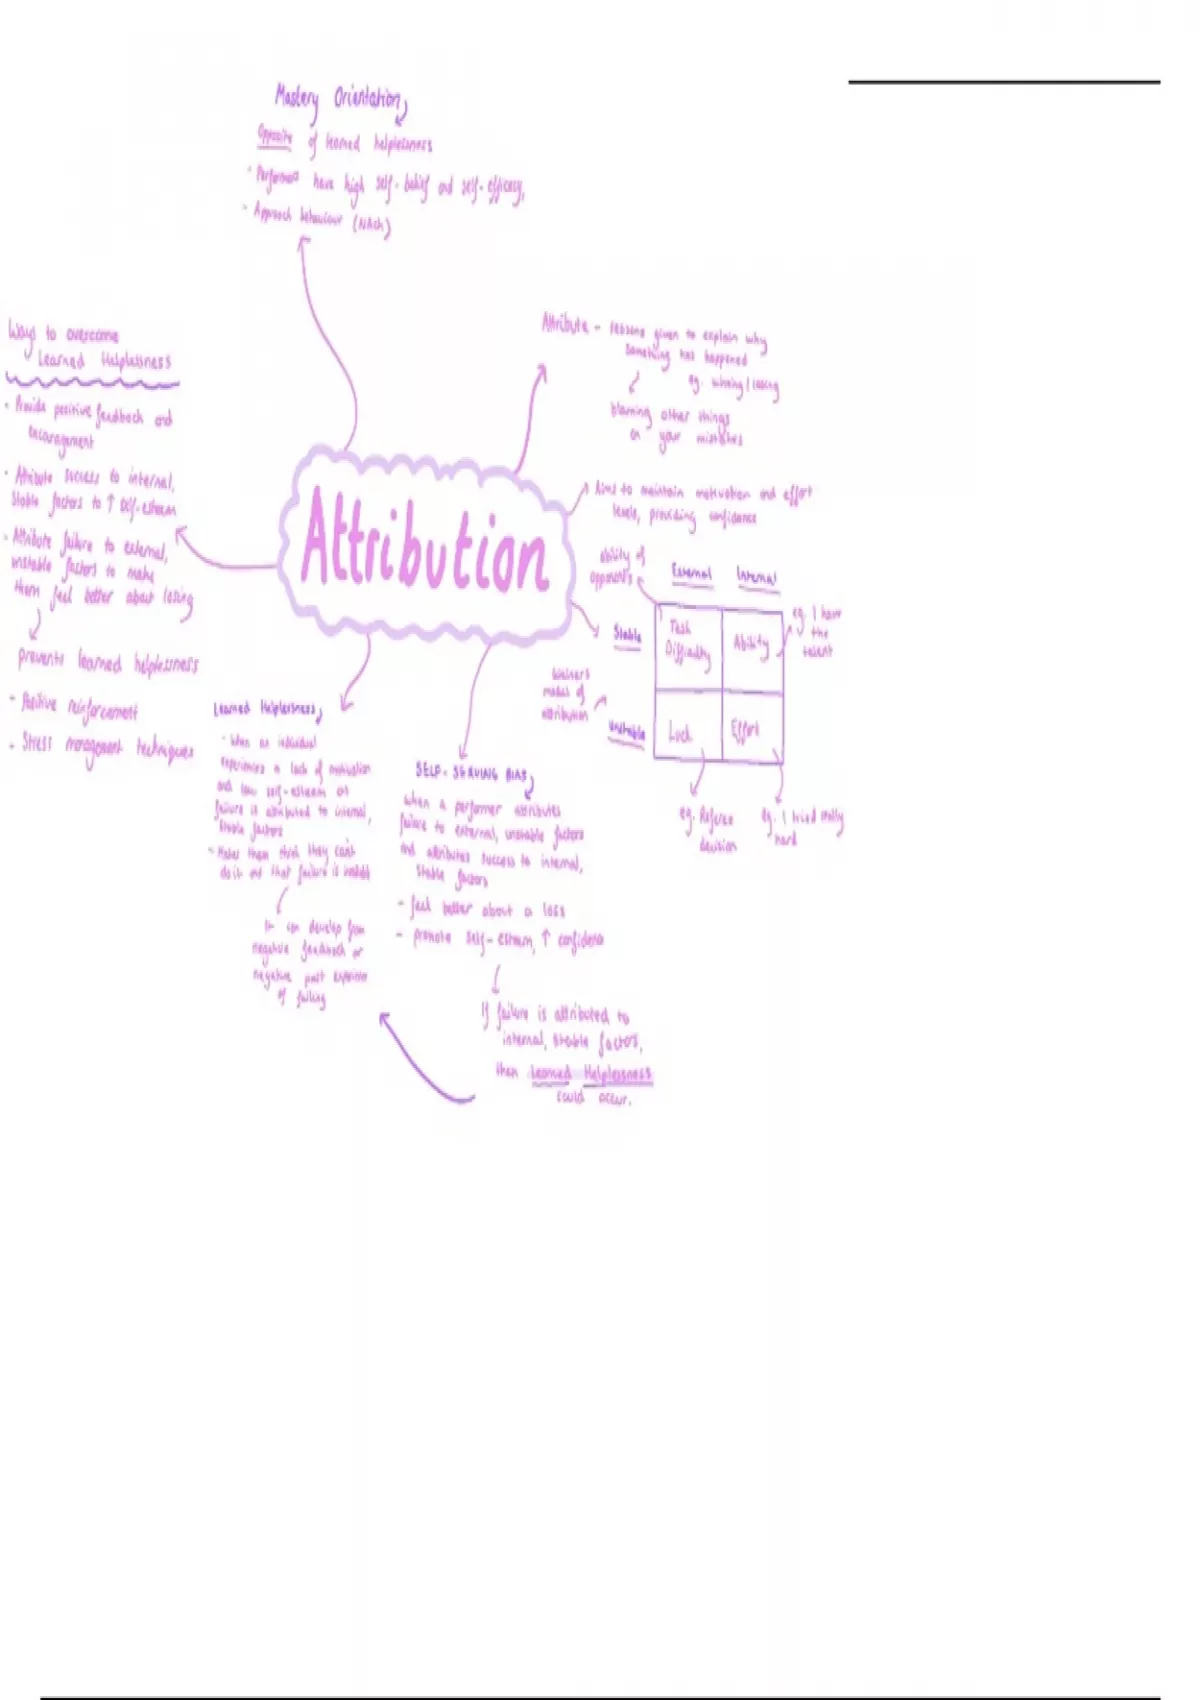 Mastery Orientation
Opposite of learned helplessness
- Performers have high self-belief and self-efficacy,
- Approach behaviour (NAch)
Attribute - reasons given to explain why
something has happened
eg. winning / losing
blaming other things
on your mistakes
Aims to maintain motivation and effort
levels, providing confidence
Ways to overcome
Learned Helplessness
- Provide positive feedback and
encouragement
- Attribute success to internal,
stable factors to ↑ self-esteem
- Attribute failure to external,
unstable factors to make
them feel better about losing
prevents learned helplessness
- Positive reinforcement
- Stress management techniques
Attribution
ability of
opponents
External Internal
Stable
Task
Difficulty
Ability
eg. I have
the
talent
Weiner's
model of
attribution
Unstable
Luck
Effort
eg. Referee
decision
eg. I tried really
hard
Learned Helplessness,
- When an individual
experiences a lack of motivation
and low self-esteem as
failure is attributed to internal,
stable factors
- Makes them think they can't
do it and that failure is
It can develop from
negative feedback or
negative past experience
of failing
SELF-SERVING BIAS,
when a performer attributes
failure to external, unstable factors
and attributes success to internal,
stable factors
- feel better about a loss
- promote self-esteem, ↑ confidence
If failure is attributed to
internal, stable factors,
then Learned Helplessness
could occur.